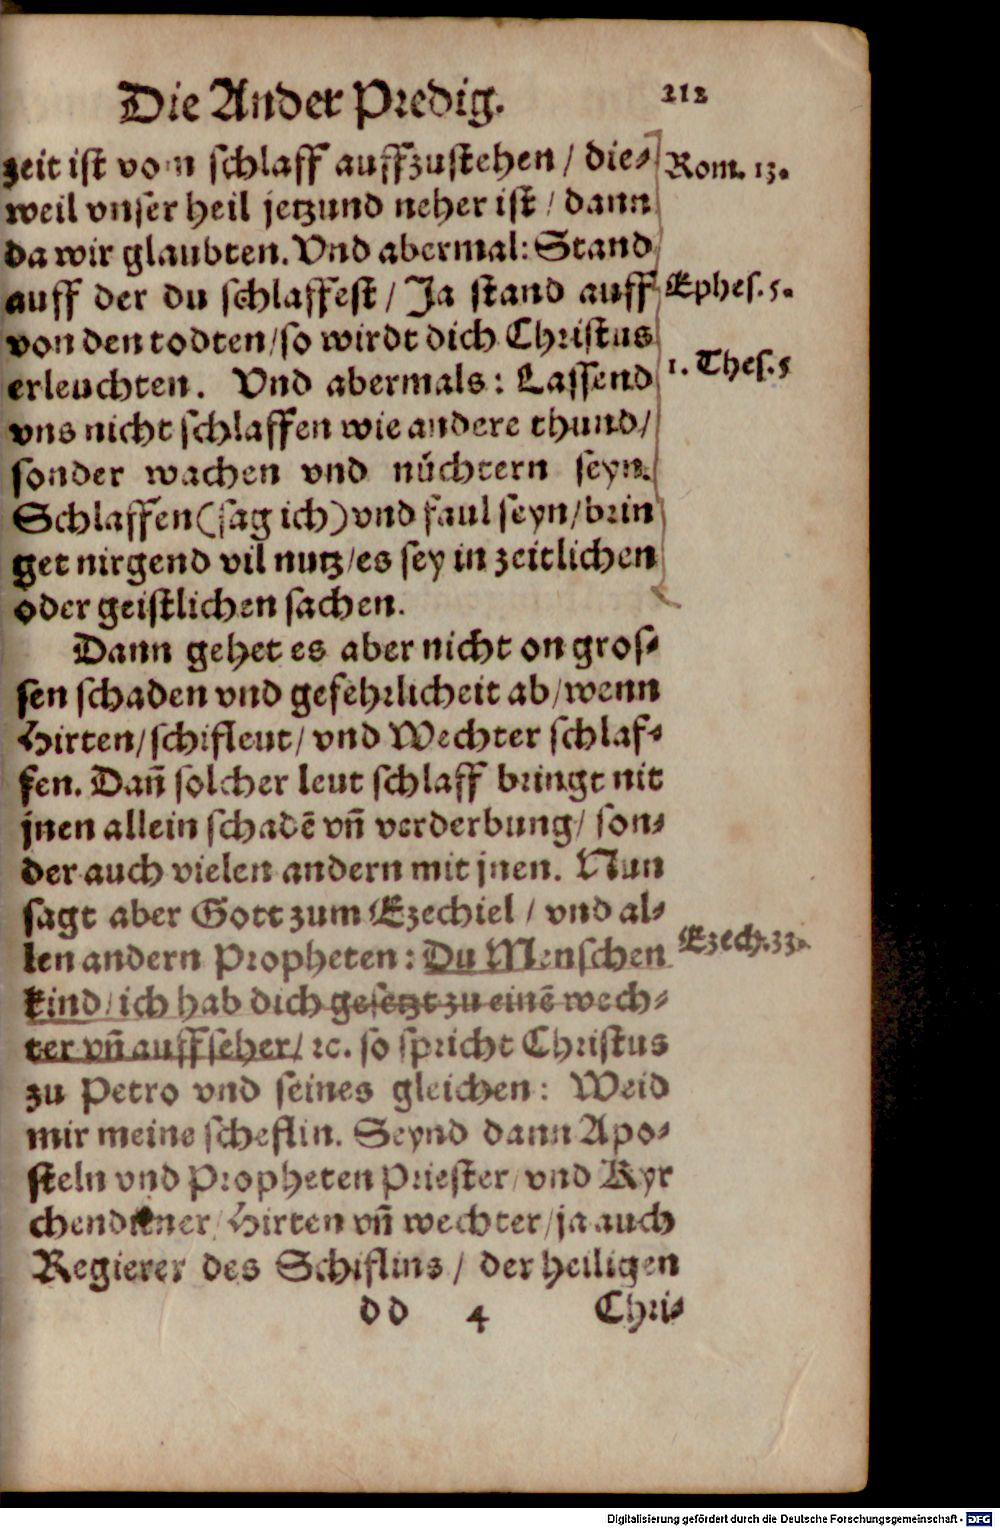 Die Ander Predig. 212
zeit ist vom schlaff auffzustehen / die⸗ Rom. 13.
weil vnser heil jetzund neher ist / dann
da wir glaubten. Vnd abermal: Stand
auff der du schlaffest / Ja stand auff Ephes. 5.
von den todten / so wirdt dich Christus
erleuchten. Vnd abermals: Lassend 1. Thes. 5
vns nicht schlaffen wie andere thund /
sonder wachen vnd nüchtern seyn.
Schlaffen (sag ich) vnd faul seyn / brin
get nirgend vil nutz / es sey in zeitlichen
oder geistlichen sachen.
Dann gehet es aber nicht on gros⸗
sen schaden vnd gefehrlicheit ab / wenn
Hirten / schifleut / vnd Wechter schlaf⸗
fen. Dañ solcher leut schlaff bringt nit
jnen allein schadē vñ verderbung / son⸗
der auch vielen andern mit jnen. Nun
sagt aber Gott zum Ezechiel / vnd al⸗
len andern Propheten: Du Menschen Ezech. 33.
kind / ich hab dich gesetzt zu einē wech⸗
ter vñ auffseher / ꝛc. so spricht Christus
zu Petro vnd seines gleichen: Weid
mir meine scheflin. Seynd dann Apo⸗
steln vnd Propheten Priester / vnd Kyr
chendiener / Hirten vñ wechter / ja auch
Regierer des Schiflins / der heiligen
dd 4 Chri⸗
Digitalisierung gefördert durch die Deutsche Forschungsgemeinschaft - DFG